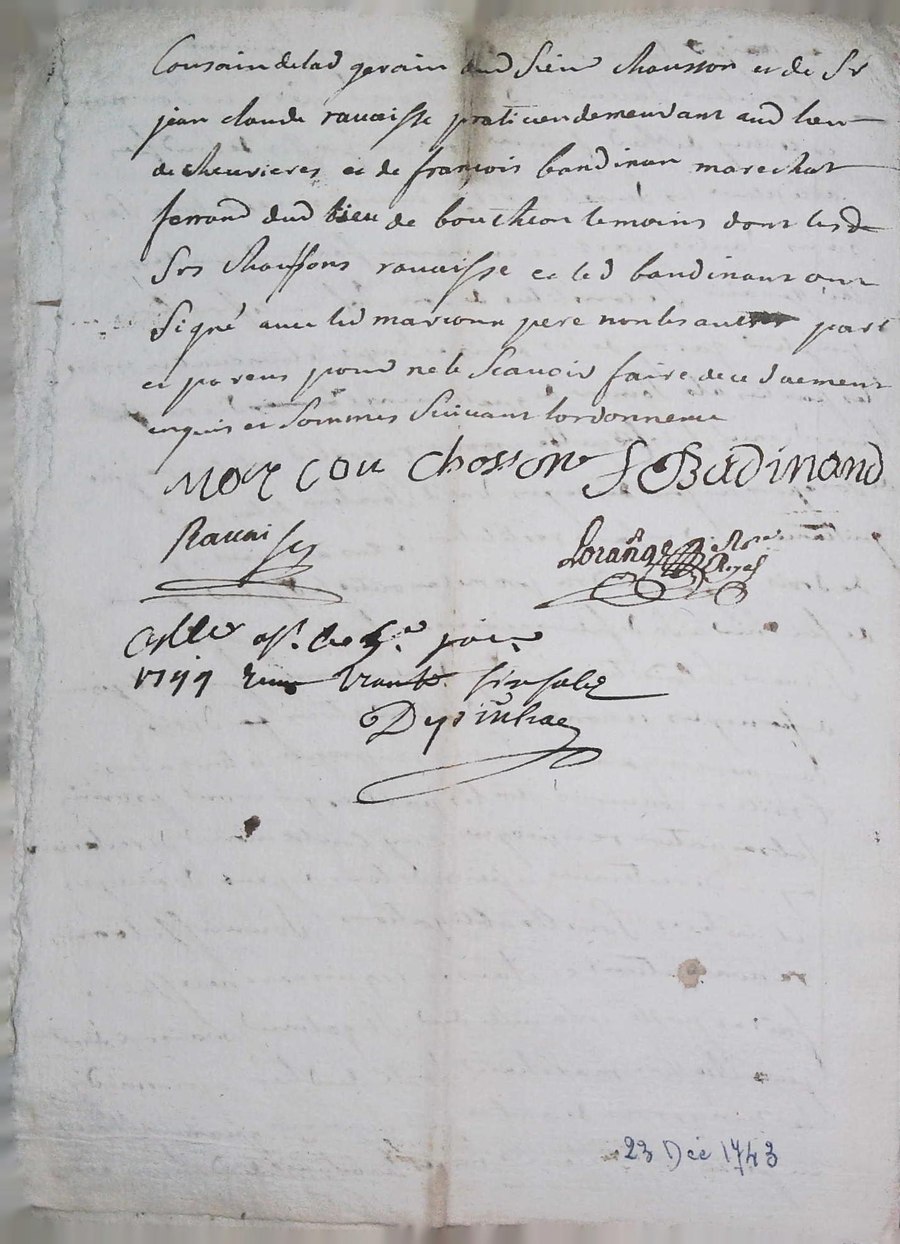 Cousain de lad gerain dud Sieur Chausson et de Sr
jean claude ravaisse praticien demeurant aud lieu
de cheuvrieres et de françois bandinan marechat
ferrand dud lieu de boutheon temoins dont lesd
Srs Chaussons ravaisse et led bandinant ont
Signé avec led marcoux pere non les autres part
et parens pour ne le Scavoir faire de ce duement
enquis et Sommes Suivant lordonnence
Marcou Chosson f Badinand
Ravaisse
Lorange Nore Royal
1744
23 Dec 1743